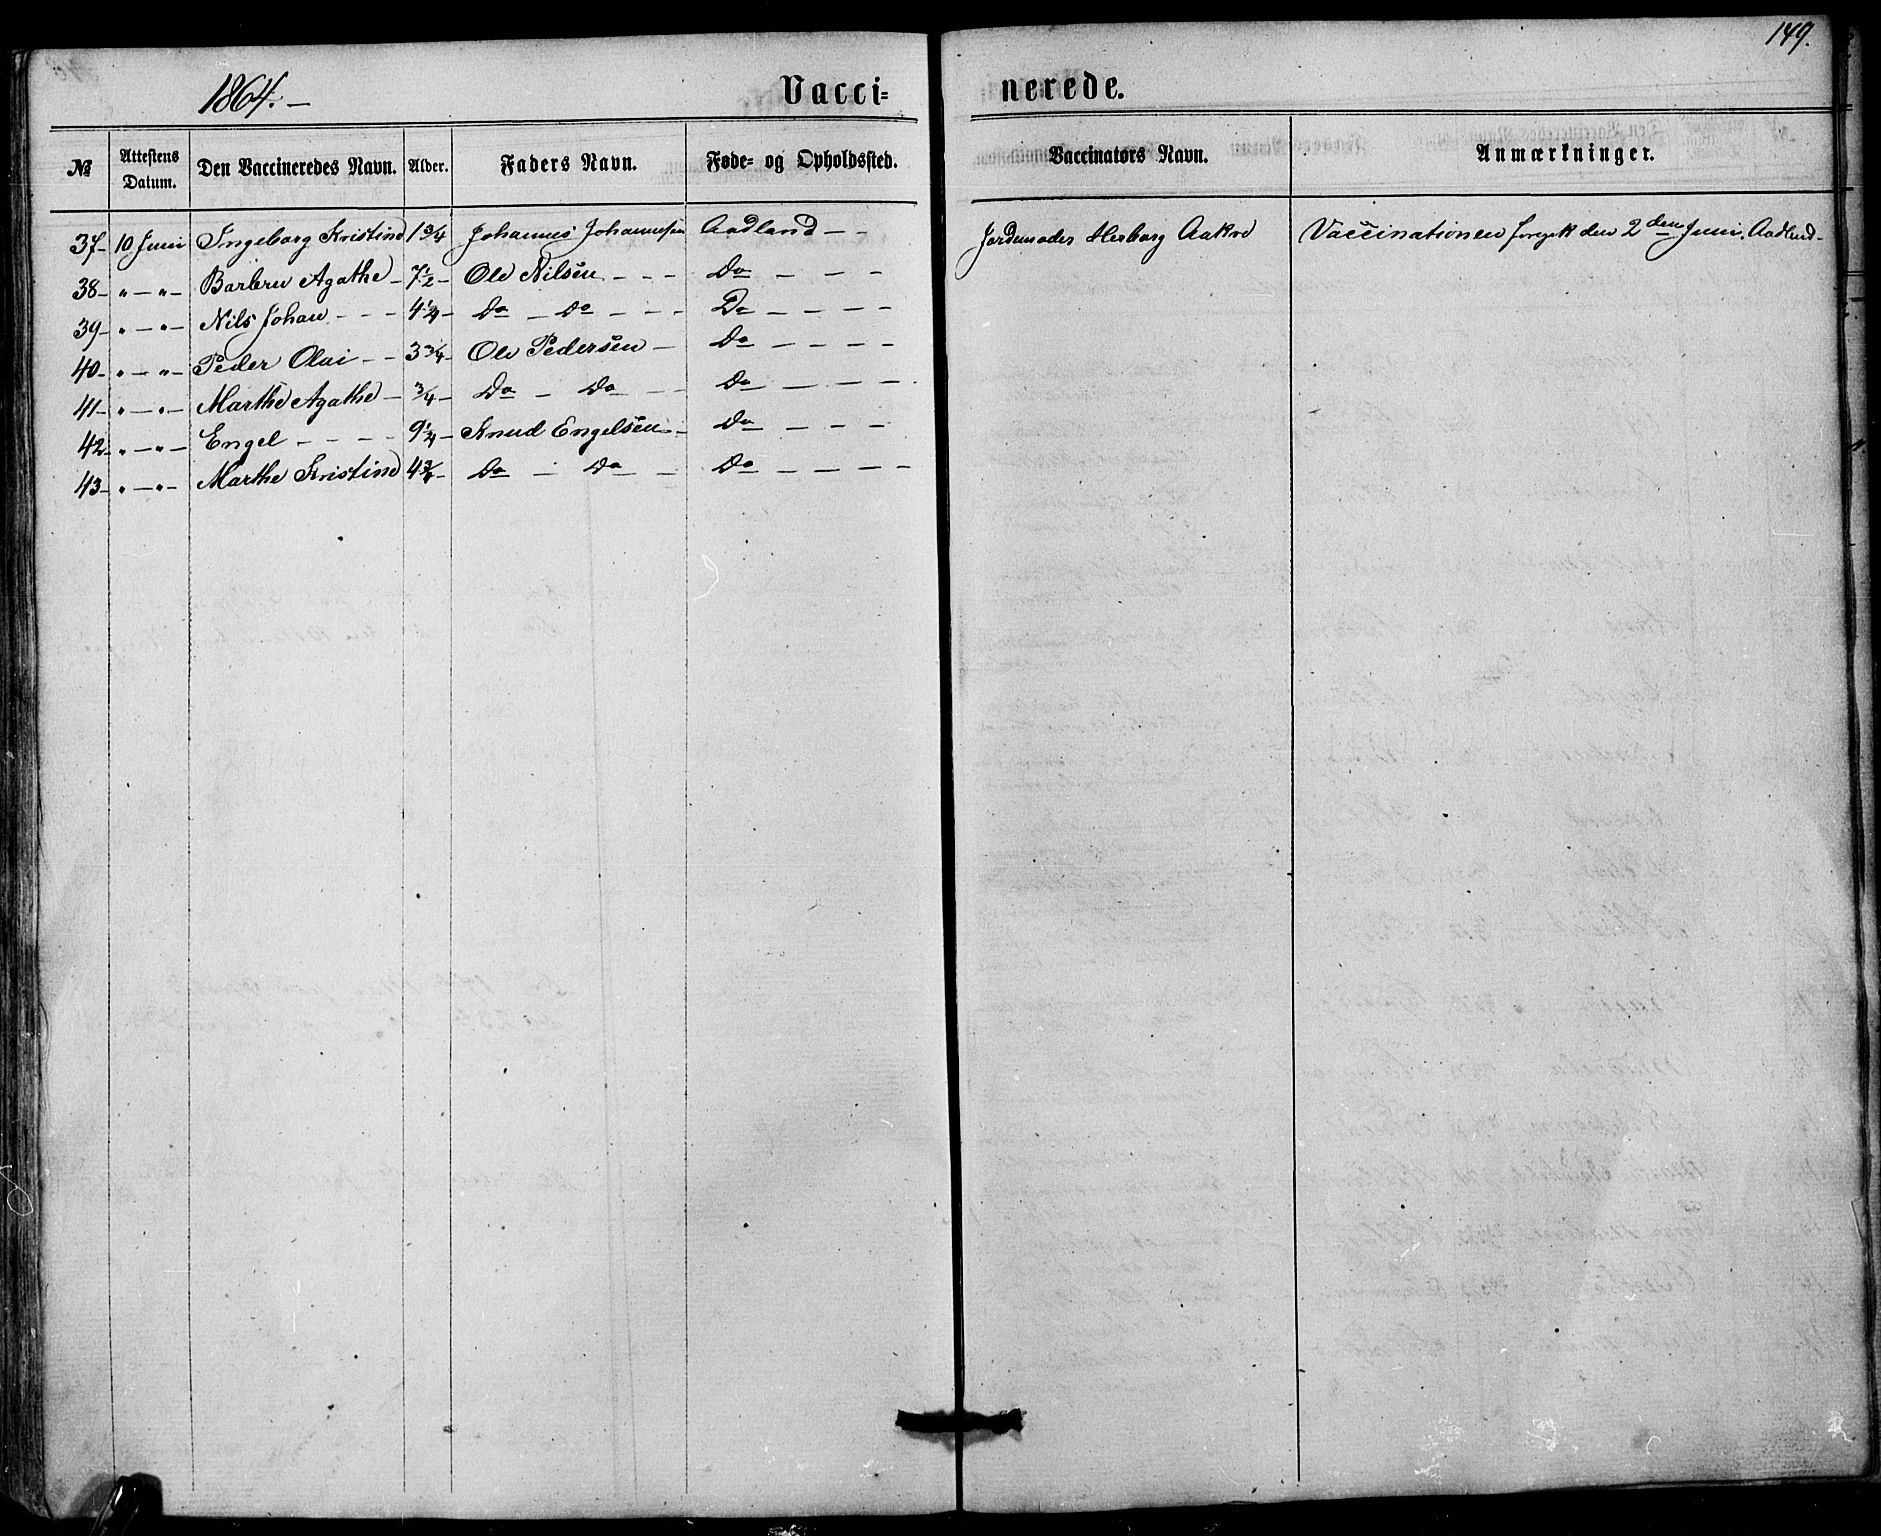 149.
1864. — Vacci= nerede.
№ Attestens Datum. Den Vaccineredes Navn. Alder. Faders Navn. Føde= og Opholdssted. Vaccinators Navn. Anmærkninger.
37- 10 Juni Ingeborg Kristine 1 3/4 Johannes Johannesen Aadland - - Jordemoder Herborg Aakre Vaccinationen foregik den 2den Juni, Aadland-
38- " - " - Barbru Agathe - 7 1/2 - Ole Nilsen - - - Do - - - -
39- " - " - Nils Johan - - - 4 1/4 - Do - Do - - - Do - - - -
40- " - " - Peder Olai - - 3 3/4 - Ole Pedersen - Do - - - -
41- " - " - Marthe Agathe - 3/4 - Do - Do - - Do - - - -
42- " - " - Engel - - - - 9 1/4 - Knud Engelsen - Do - - - -
43- " - " - Marthe Kristine 4 3/4 - Do - Do - Do - - - -